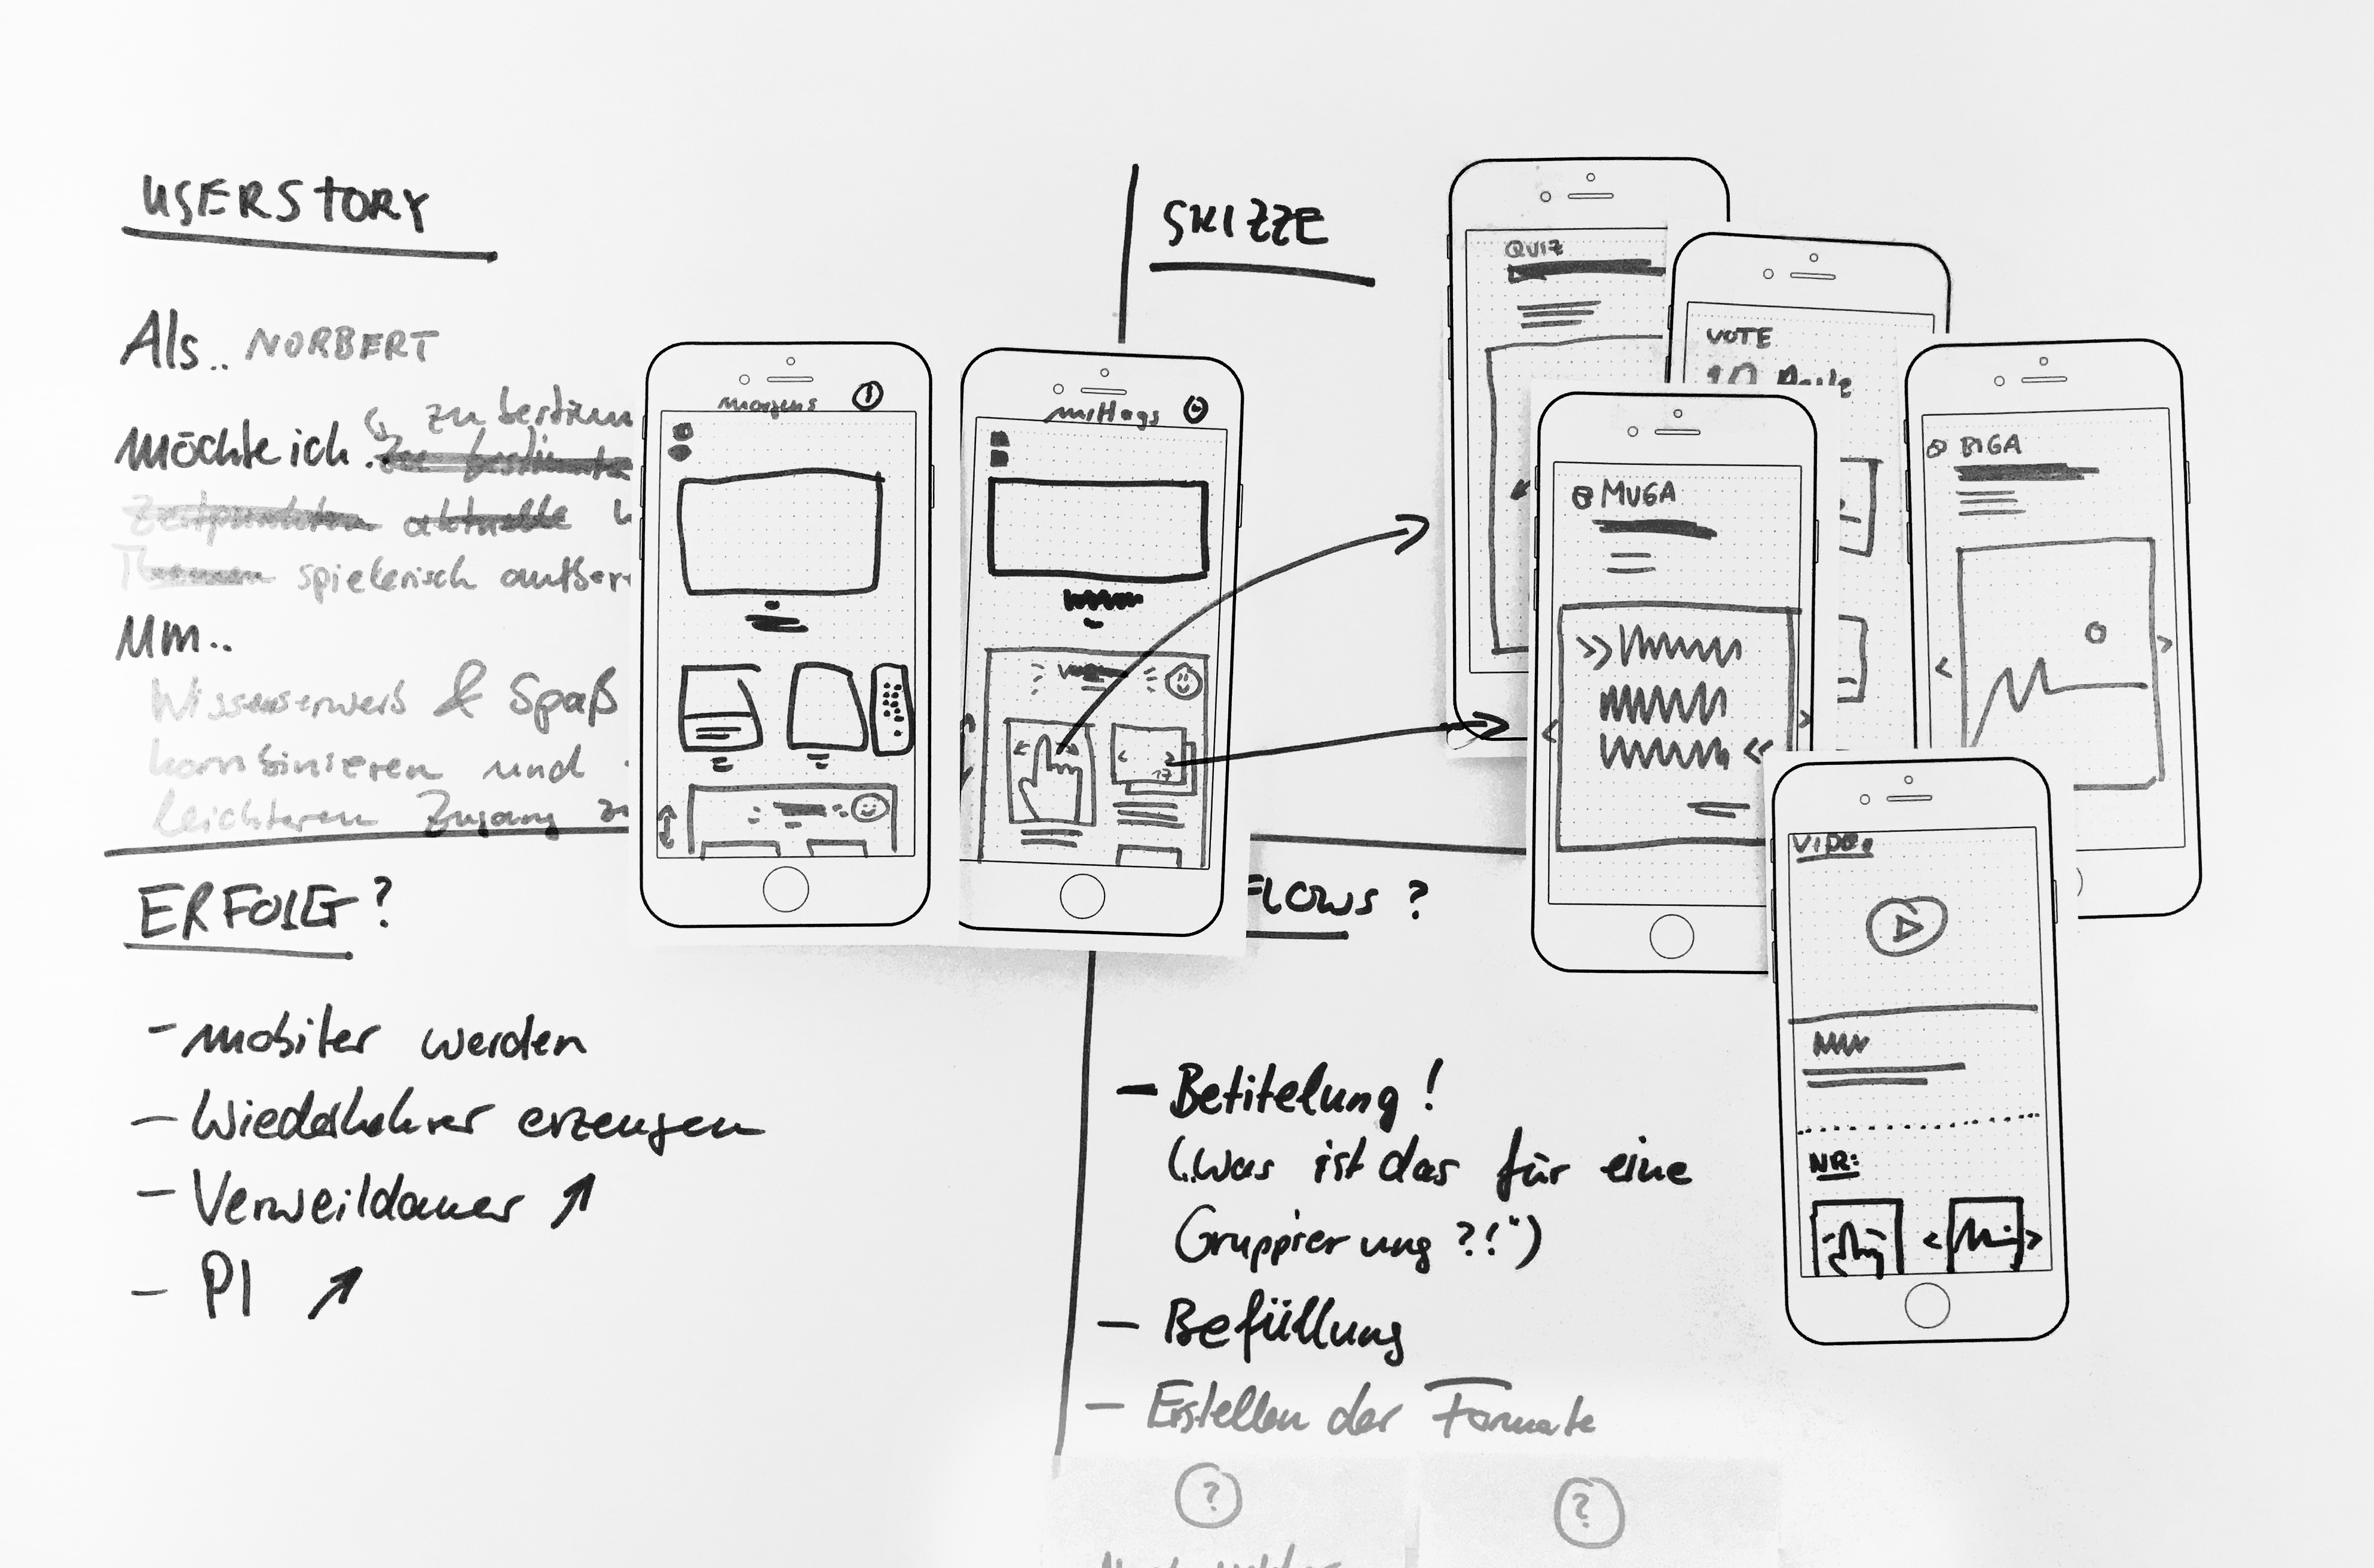 USERSTORY
Als.. NORBERT
zu bestimm
möchte ich ..
Zeitpunkten aktuelle
Themen spielerisch aufber
Um..
Wissenserwerb & Spaß
kombinieren und
leichteren Zugang zu
ERFOLG?
- mobiler werden
- Wiederkehrer erzeugen
- Verweildauer ↗
- PI ↗
morgens
mittags
SKIZZE
QUIZ
VOTE
MUGA
BIGA
VIDEO
NR:
FLOWS?
- Betitelung!
(„Was ist das für eine
Gruppierung ?!")
- Befüllung
- Erstellen der Formate
?
?